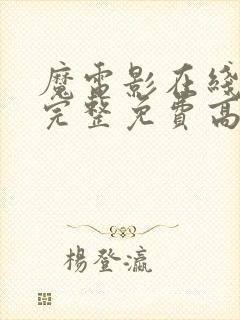 魔雷影在线
完整免費高
楊登瀛